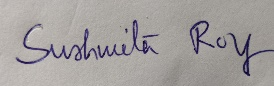 Sushmita Roy